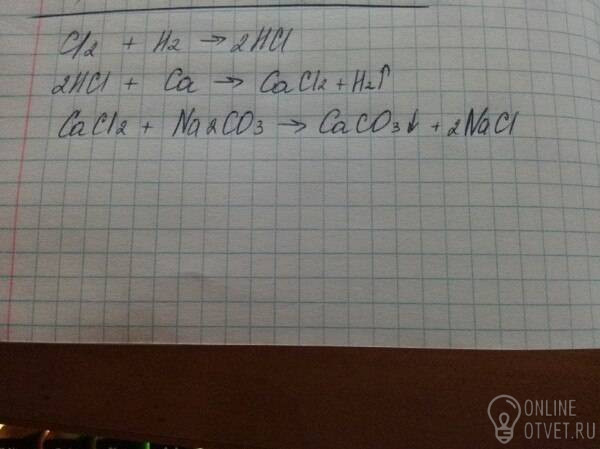 Cl2 + H2 → 2HCl
2HCl + Ca → CaCl2 + H2↑
CaCl2 + Na2CO3 → CaCO3↓ + 2NaCl
ONLINE
OTVET.RU